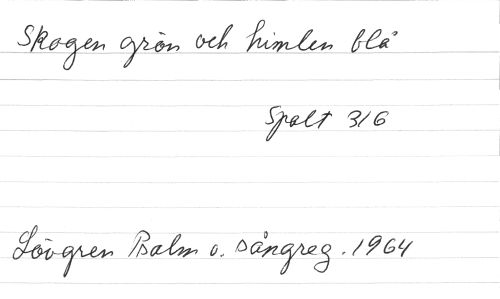 Skogen grön och himlen blå
Spalt 316
Lövgren Psalm o. sångreg. 1964